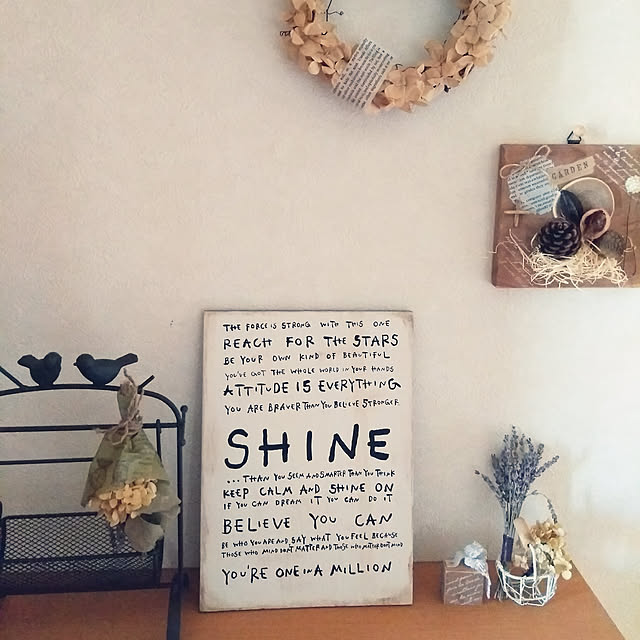 GARDEN
THE FORCE IS STRONG WITH THIS ONE
REACH FOR THE STARS
BE YOUR OWN KIND OF BEAUTIFUL
YOU'VE GOT THE WHOLE WORLD IN YOUR HANDS
ATTITUDE IS EVERYTHING
YOU ARE BRAVER THAN YOU BELIEVE STRONGER.
SHINE
...THAN YOU SEEM AND SMARTER THAN YOU THINK
KEEP CALM AND SHINE ON
IF YOU CAN DREAM IT YOU CAN DO IT
BELIEVE YOU CAN
BE WHO YOU ARE AND SAY WHAT YOU FEEL BECAUSE
THOSE WHO MIND DON'T MATTER AND THOSE WHO MATTER DON'T MIND
YOU'RE ONE IN A MILLION